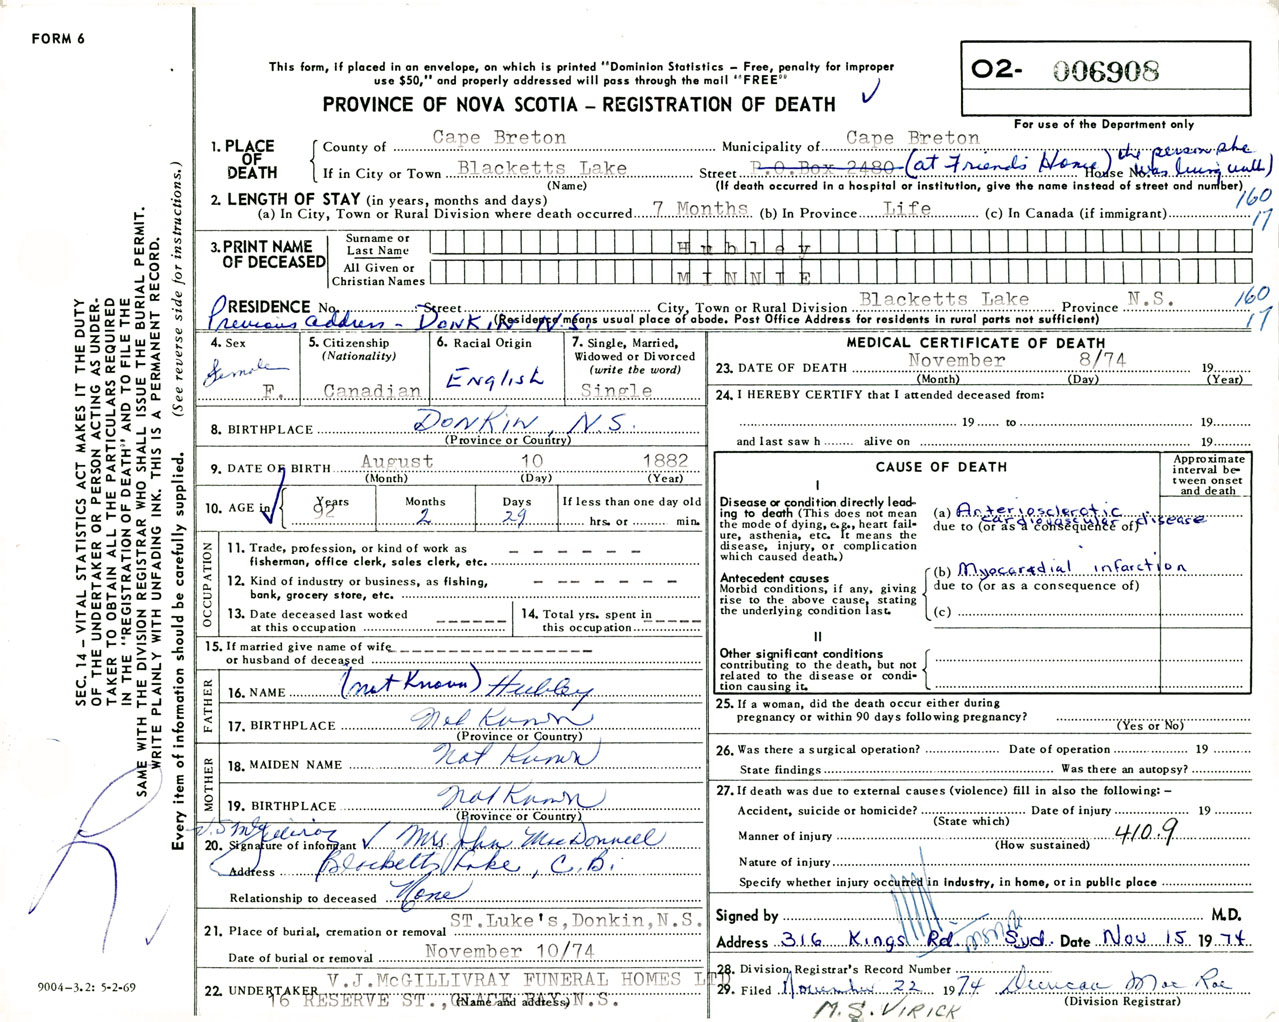 FORM 6
This form, if placed in an envelope, on which is printed "Dominion Statistics – Free, penalty for improper
use $50," and properly addressed will pass through the mail "FREE"
PROVINCE OF NOVA SCOTIA – REGISTRATION OF DEATH
O2- 006908
For use of the Department only
SEC. 14 – VITAL STATISTICS ACT MAKES IT THE DUTY
OF THE UNDERTAKER OR PERSON ACTING AS UNDER-
TAKER TO OBTAIN ALL THE PARTICULARS REQUIRED
IN THE "REGISTRATION OF DEATH" AND TO FILE THE
SAME WITH THE DIVISION REGISTRAR WHO SHALL ISSUE THE BURIAL PERMIT.
WRITE PLAINLY WITH UNFADING INK. THIS IS A PERMANENT RECORD.
Every item of information should be carefully supplied. (See reverse side for instructions.)
1. PLACE OF DEATH
County of Cape Breton Municipality of Cape Breton
If in City or Town Blacketts Lake Street P.O.Box 2480 (at Friends Home) the person she
(Name) House No. was living with)
(If death occurred in a hospital or institution, give the name instead of street and number)
2. LENGTH OF STAY (in years, months and days) 160
(a) In City, Town or Rural Division where death occurred 7 Months (b) In Province Life (c) In Canada (if immigrant) 17
3. PRINT NAME OF DECEASED
Surname or Last Name Hubley
All Given or Christian Names MINNIE
RESIDENCE No. Street City, Town or Rural Division Blacketts Lake Province N.S. 160
Previous address - DONKIN N.S. (Residence means usual place of abode. Post Office Address for residents in rural parts not sufficient) 17
4. Sex Female F.
5. Citizenship (Nationality) Canadian
6. Racial Origin ENGLISH
7. Single, Married, Widowed or Divorced (write the word) Single
8. BIRTHPLACE DONKIN, N.S.
(Province or Country)
9. DATE OF BIRTH August 10 1882
(Month) (Day) (Year)
10. AGE in Years 92 Months 2 Days 29 If less than one day old
hrs. or min.
OCCUPATION
11. Trade, profession, or kind of work as
fisherman, office clerk, sales clerk, etc. – – – – – –
12. Kind of industry or business, as fishing,
bank, grocery store, etc. – – – – – –
13. Date deceased last worked
at this occupation
14. Total yrs. spent in
this occupation
15. If married give name of wife
or husband of deceased
FATHER
16. NAME (not Known) Hubley
17. BIRTHPLACE Not Known
(Province or Country)
MOTHER
18. MAIDEN NAME Not Known
19. BIRTHPLACE Not Known
(Province or Country)
20. Signature of informant Mrs. John MacDonnell
Address Blacketts Lake, C.B.
Relationship to deceased None
21. Place of burial, cremation or removal ST.Luke's,Donkin,N.S.
Date of burial or removal November 10/74
22. UNDERTAKER V.J.McGILLIVRAY FUNERAL HOMES LTD
16 RESERVE ST., GLACE BAY, N.S.
(Name and address)
9004-3.2: 5-2-69
MEDICAL CERTIFICATE OF DEATH
23. DATE OF DEATH November 8/74 19
(Month) (Day) (Year)
24. I HEREBY CERTIFY that I attended deceased from:
19 to 19
and last saw h alive on 19
CAUSE OF DEATH
Approximate interval be-tween onset and death
I
Disease or condition directly lead-
ing to death (This does not
mean the mode of dying, e.g., heart fail-
ure, asthenia, etc. It means the
disease, injury, or complication
which caused death.)
(a) Arteriosclerotic
cardiovascular disease
due to (or as a consequence of)
Antecedent causes
Morbid conditions, if any, giving
rise to the above cause, stating
the underlying condition last.
(b) Myocardial infarction
due to (or as a consequence of)
(c)
II
Other significant conditions
contributing to the death, but not
related to the disease or condi-
tion causing it.
25. If a woman, did the death occur either during
pregnancy or within 90 days following pregnancy?
(Yes or No)
26. Was there a surgical operation? Date of operation 19
State findings Was there an autopsy?
27. If death was due to external causes (violence) fill in also the following: –
Accident, suicide or homicide? Date of injury 19
(State which)
Manner of injury 410.9
(How sustained)
Nature of injury
Specify whether injury occurred in Industry, in home, or in public place
Signed by M.D.
Address 316 Kings Rd. Syd. Date Nov 15 1974
28. Division Registrar's Record Number
29. Filed November 22 1974 Duncan Mac Rae
(Division Registrar)
M.S. VIRICK